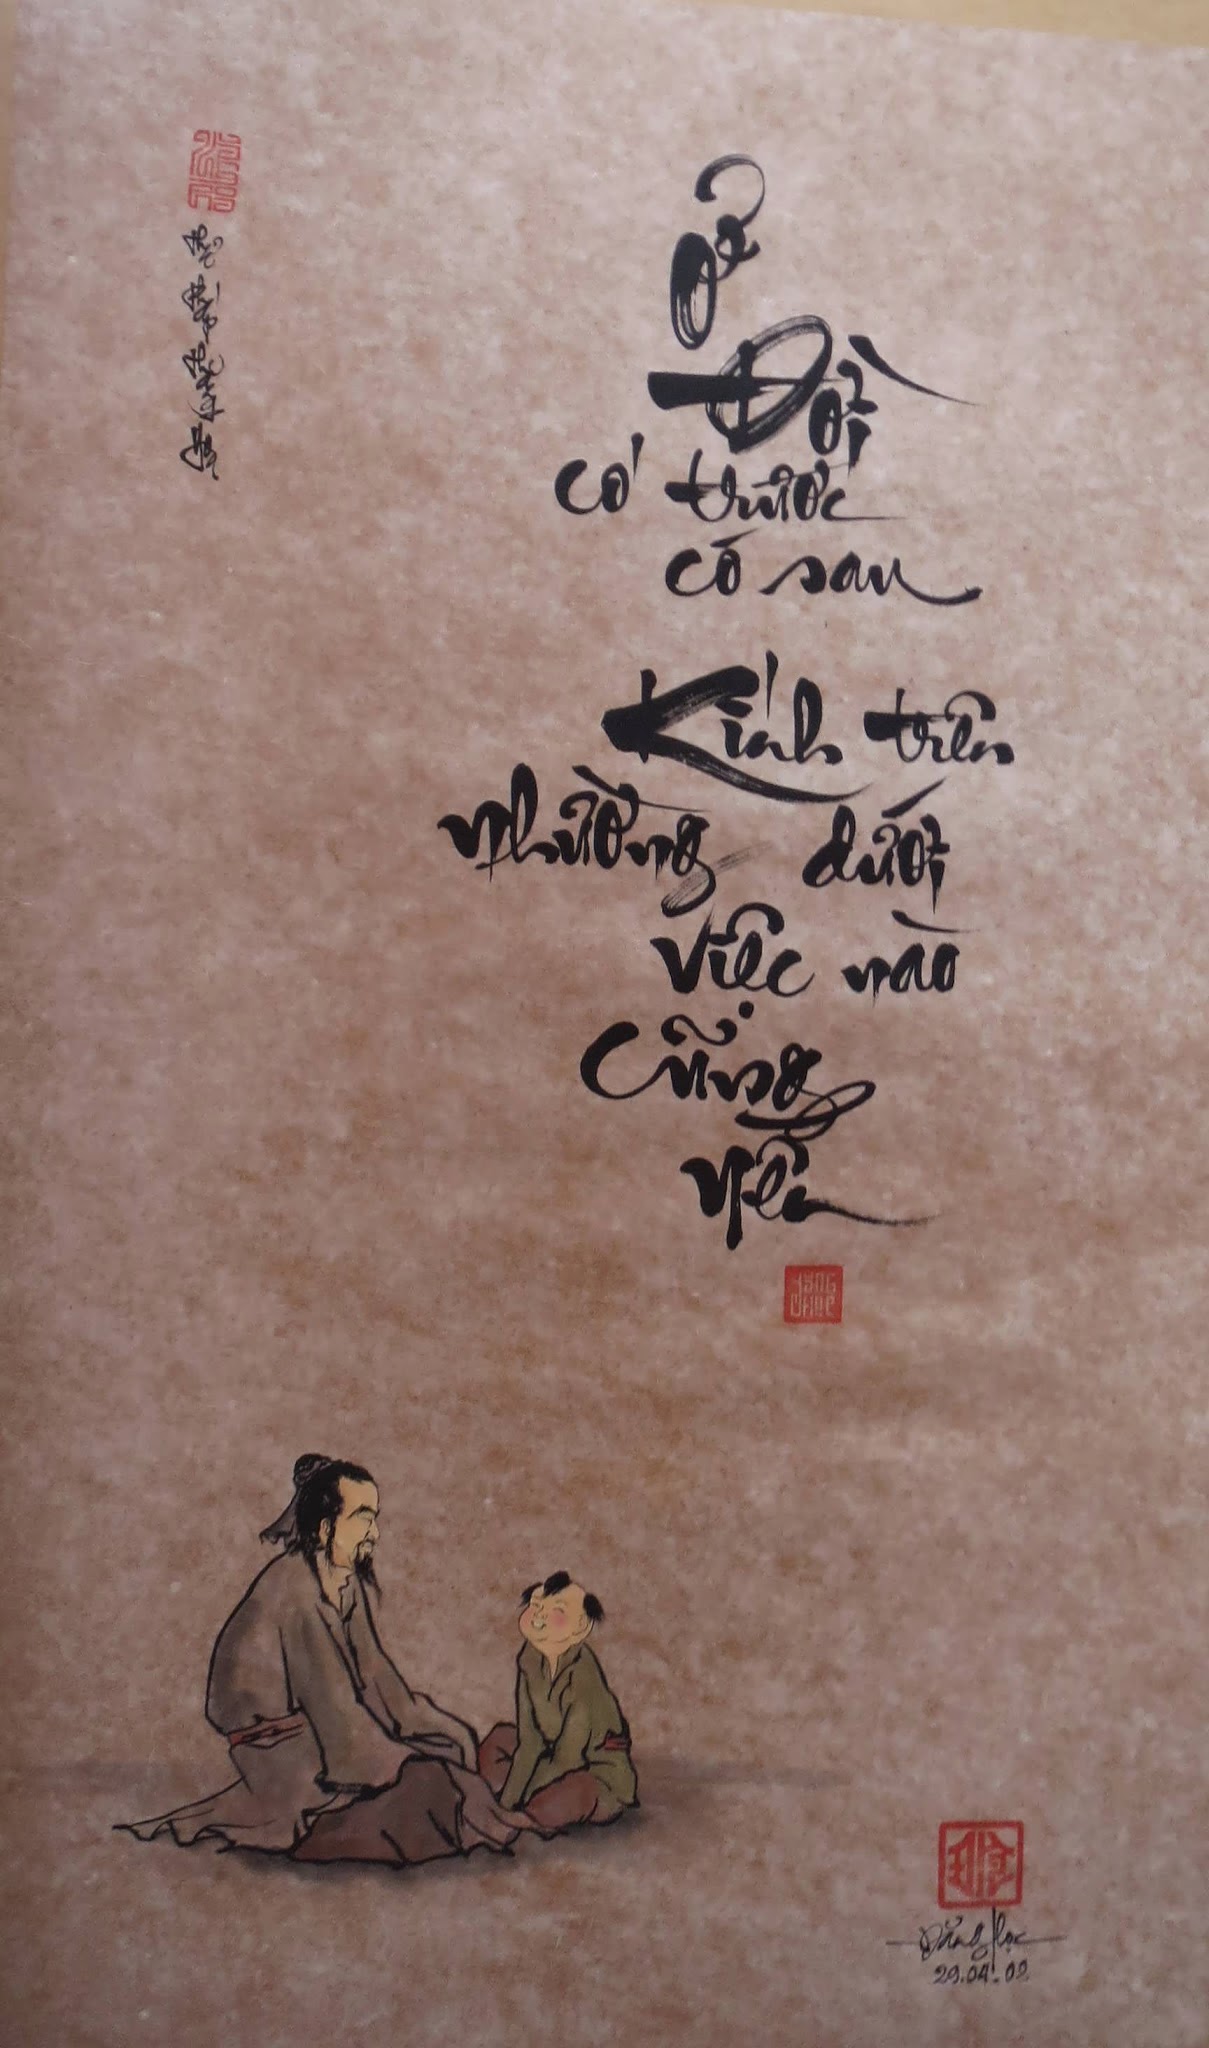 Ở
Đời
có trước
có sau
Kính trên
nhường dưới
việc nào
cũng
yên
Đăng Học
29.04.02